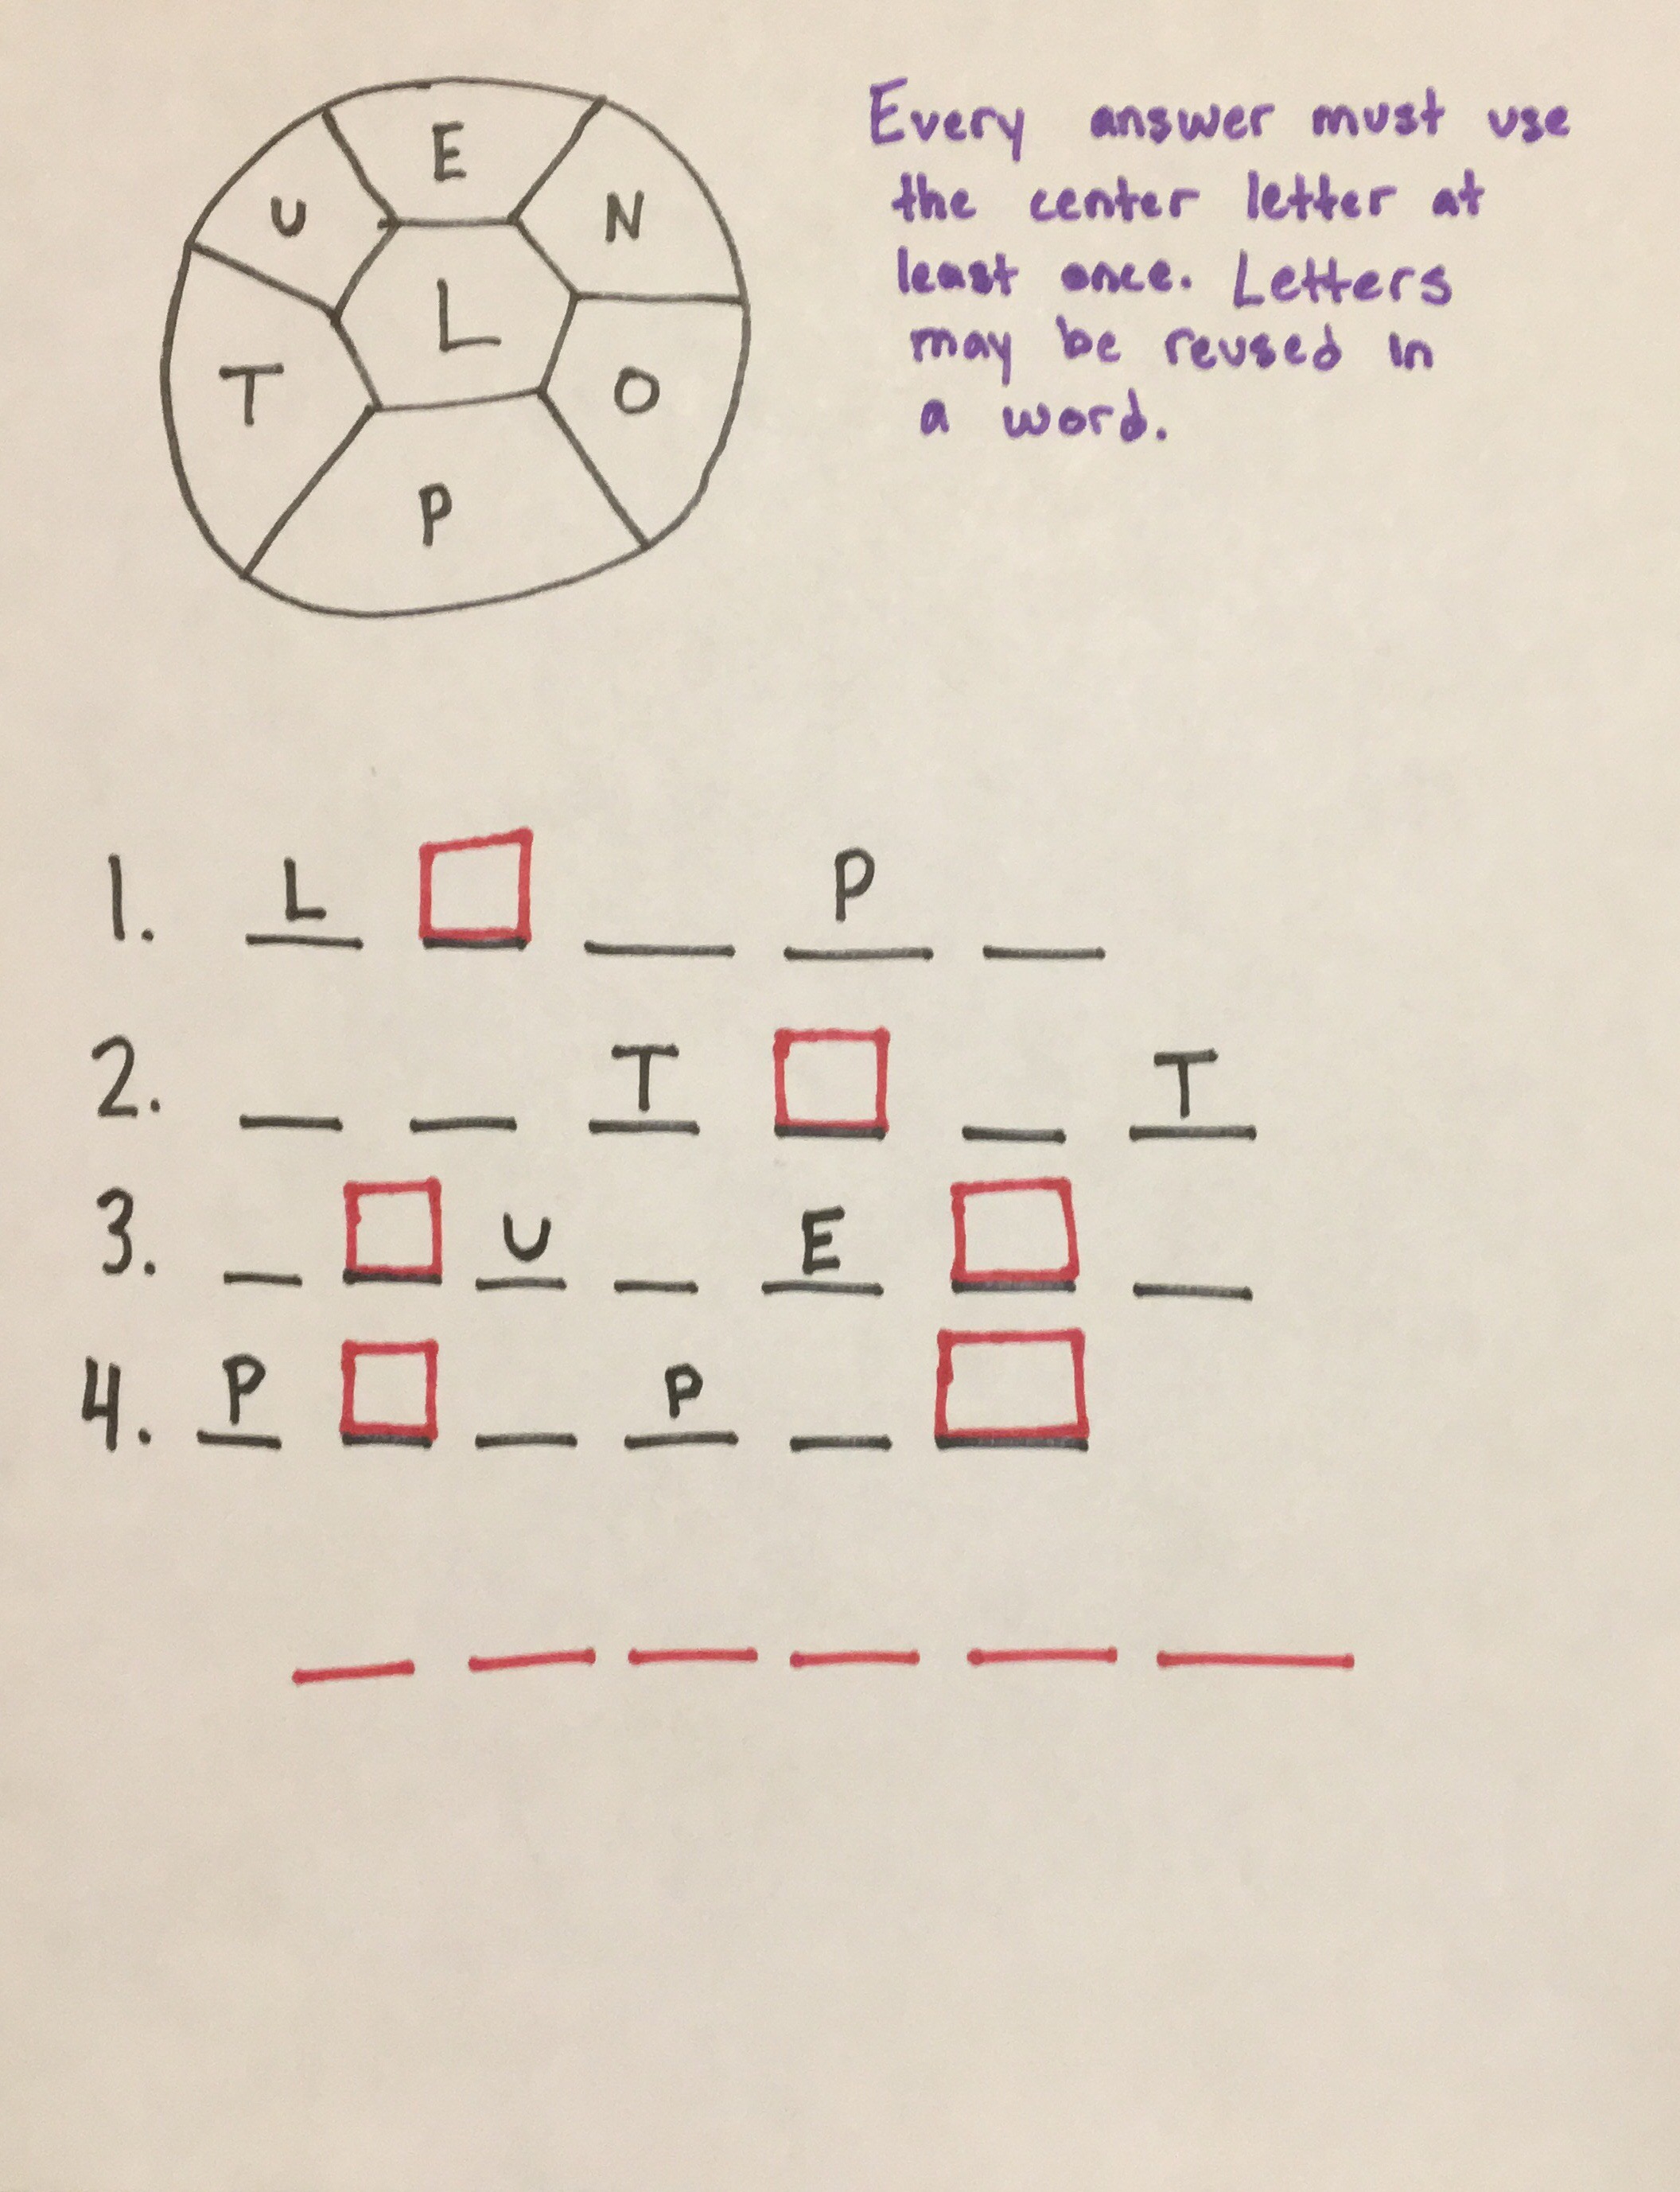 E
U
N
L
T
O
P
Every answer must use
the center letter at
least once. Letters
may be reused in
a word.
1. L P
2. T T
3. U E
4. P P